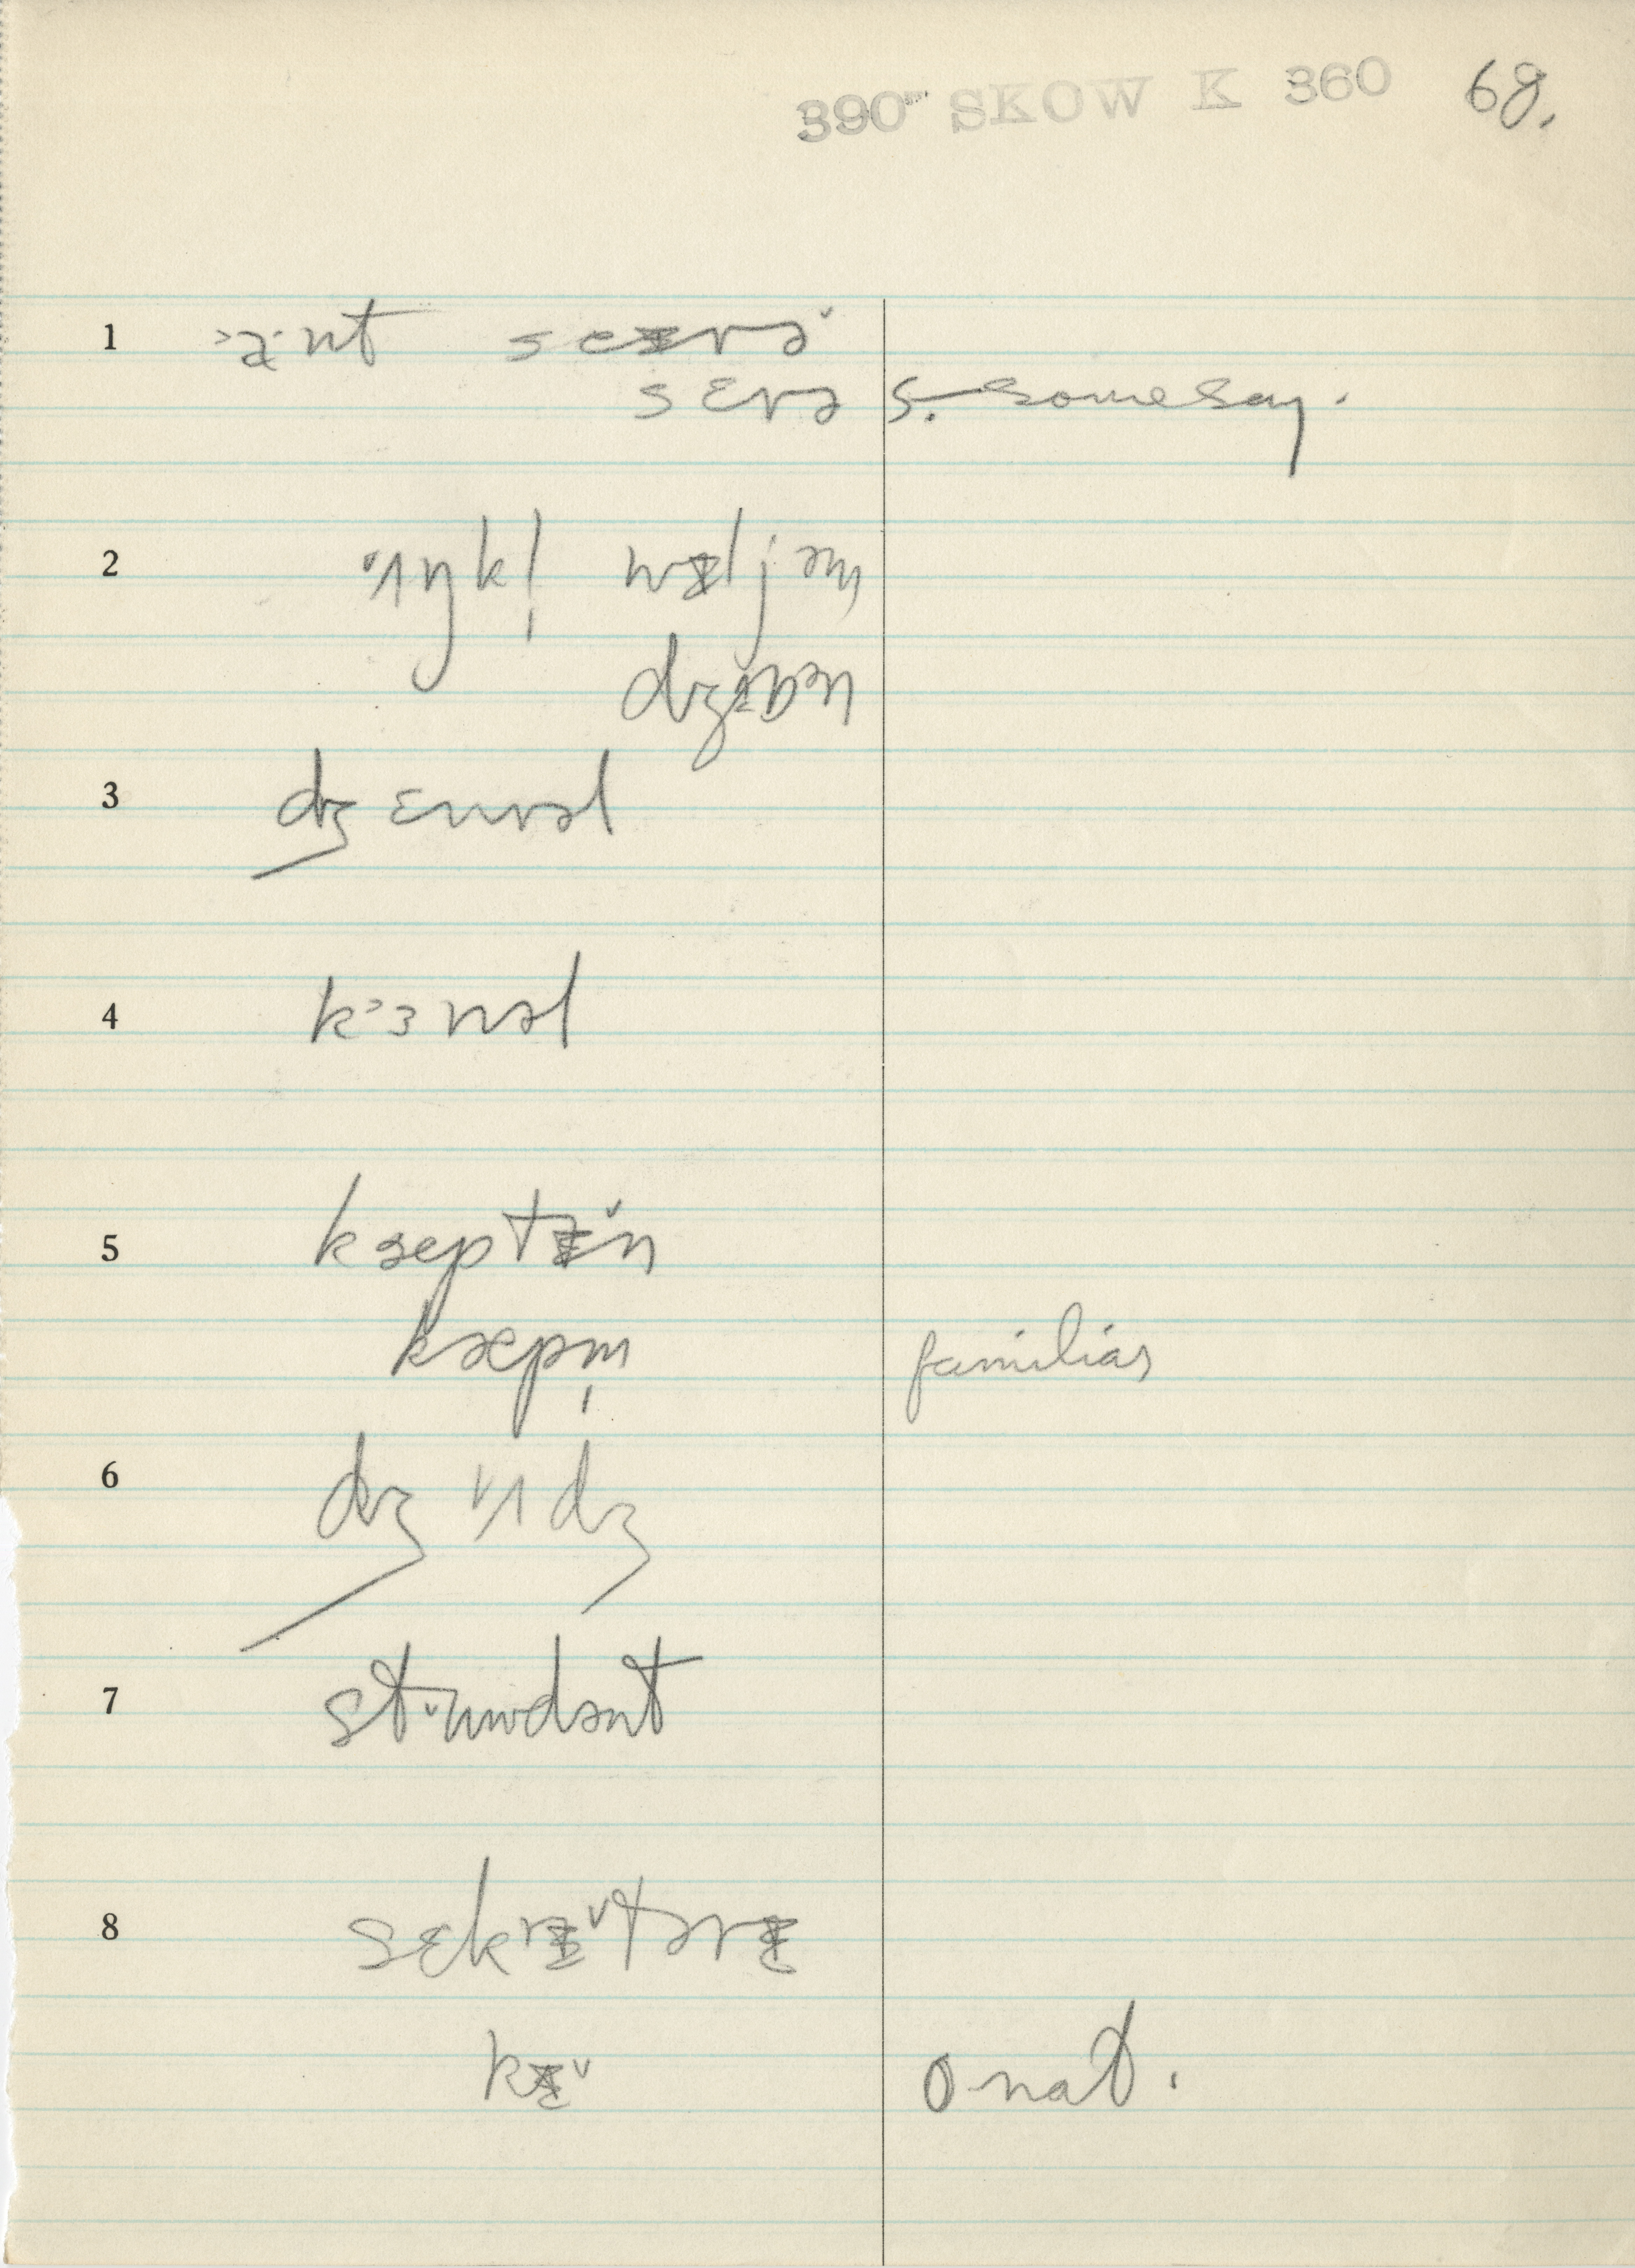 390 SKOW K 360 68.
1 >a·nt seᵻrə˅
sɛrə s. some say.
2 ʌŋk! wᵻljəm
dʒɒn
3 dʒɛnrəl
4 kɜnəl
5 kæptᵻ˅n
kæpm̩ familiar
6 dʒʌdʒ
7 stʉwdənt
8 sɛkrᵻ˅tərᵻ
kᵻ˅ o nat.